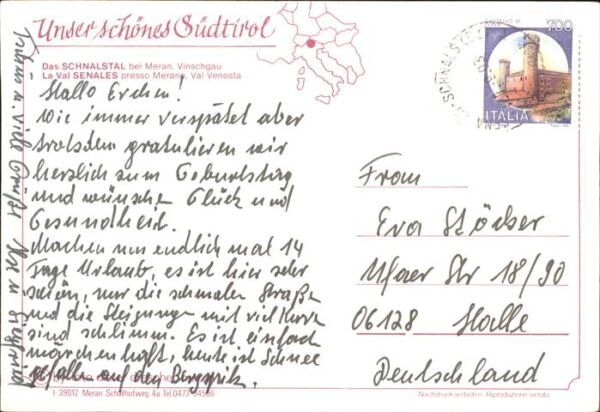 Unser schönes Südtirol
Das SCHNALSTAL bei Meran, Vinschgau
La Val SENALES presso Merano, Val Venosta
Hallo Evchen!
Wie immer verspätet aber
trotzdem gratulieren wir
herzlich zum Geburtstag
und wünschen Glück und
Gesundheit.
Machen nun endlich mal 14
Tage Urlaub, es ist hier sehr
schön, nur die schmalen Straßen
und die Steigungen mit viel Kurven
sind schlimm. Es ist einfach
märchenhaft, heute ist Schnee
gefallen auf den Bergspitz.
u. viele Grüße
u. Siegfried
I-39012 Meran Schafhofweg 4a Tel 0473
700
SCHNALSTAL
ITALIA
Frau
Eva Stöcker
Ufaer Str 18/90
06128 Halle
Deutschland
Nachdruck verboten - Riproduzione vietata